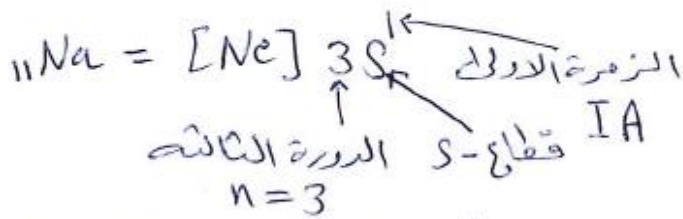 ₁₁Na = [Ne] 3S¹ الزمرة الاولى
IA
الدورة الثالثه قطاع-S
n = 3